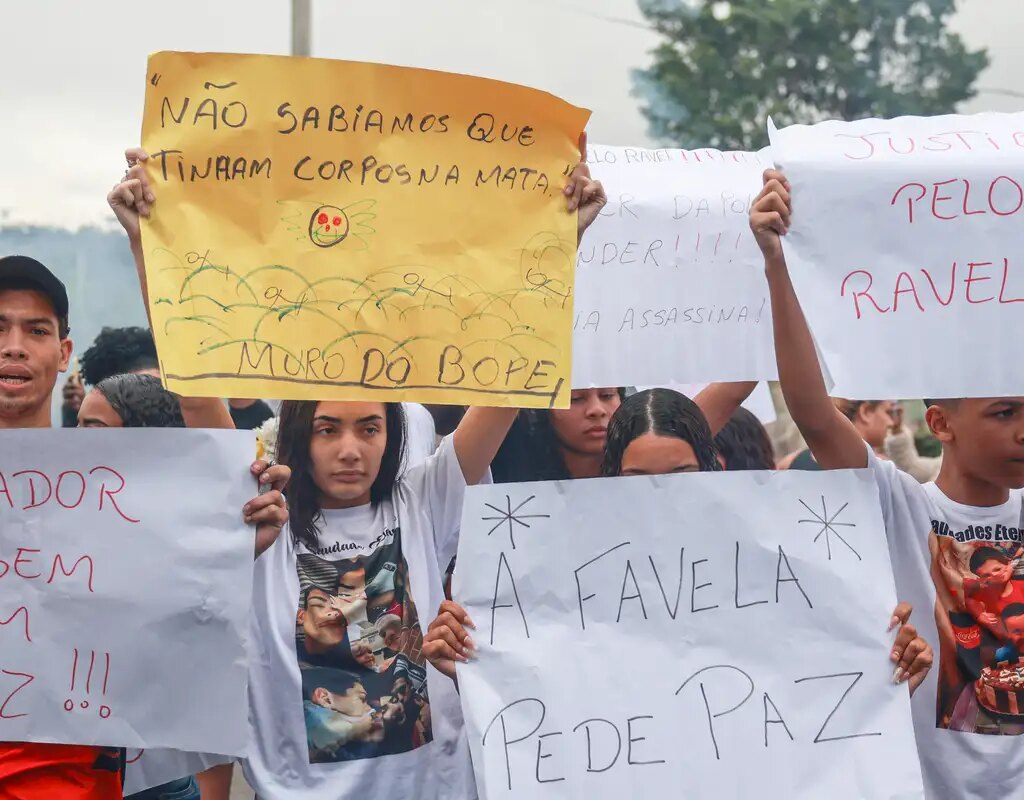 "NÃO SABÍAMOS QUE
TINHAM CORPOS NA MATA"
MURO DO BOPE
PELO RAVEL!!!!!!
DA
NDER!!!!
IA ASSASSINA!
JUSTIÇ
PELO
RAVEL
ADOR
DEM
M
Z!!!
A FAVELA
PEDE PAZ
Saudades Eter
Coca-Cola